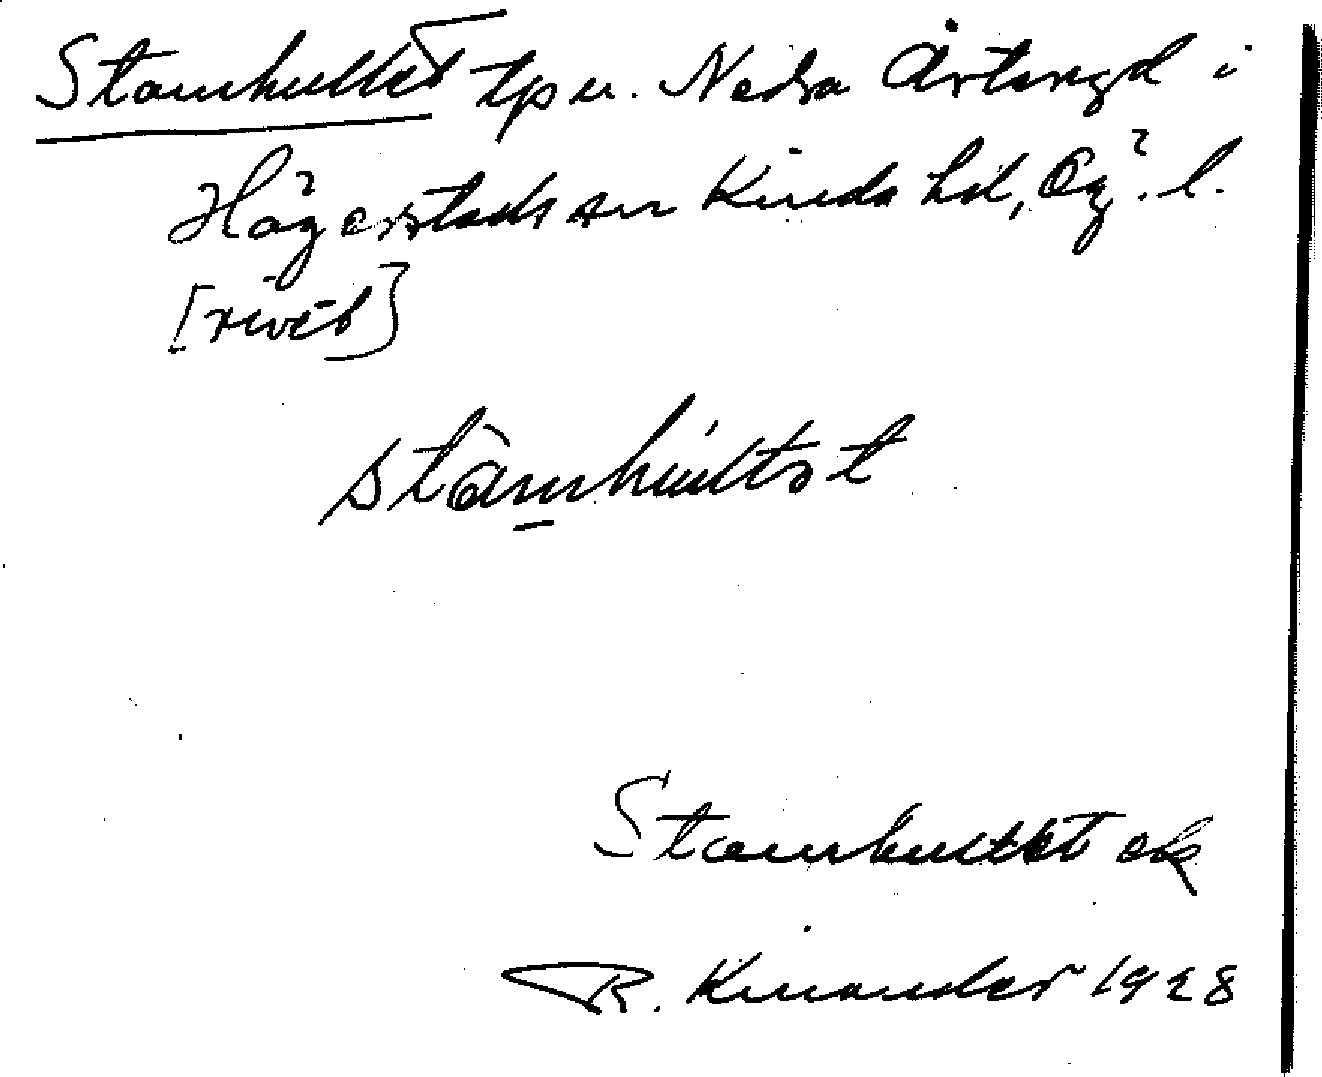 Stamhultet tp u. Nedra Årteryd i
Hägerstads sn Kinda hd, Ög. l.
[rivet]
stàmhultət
Stamhultet ek
R. Kinander 1928